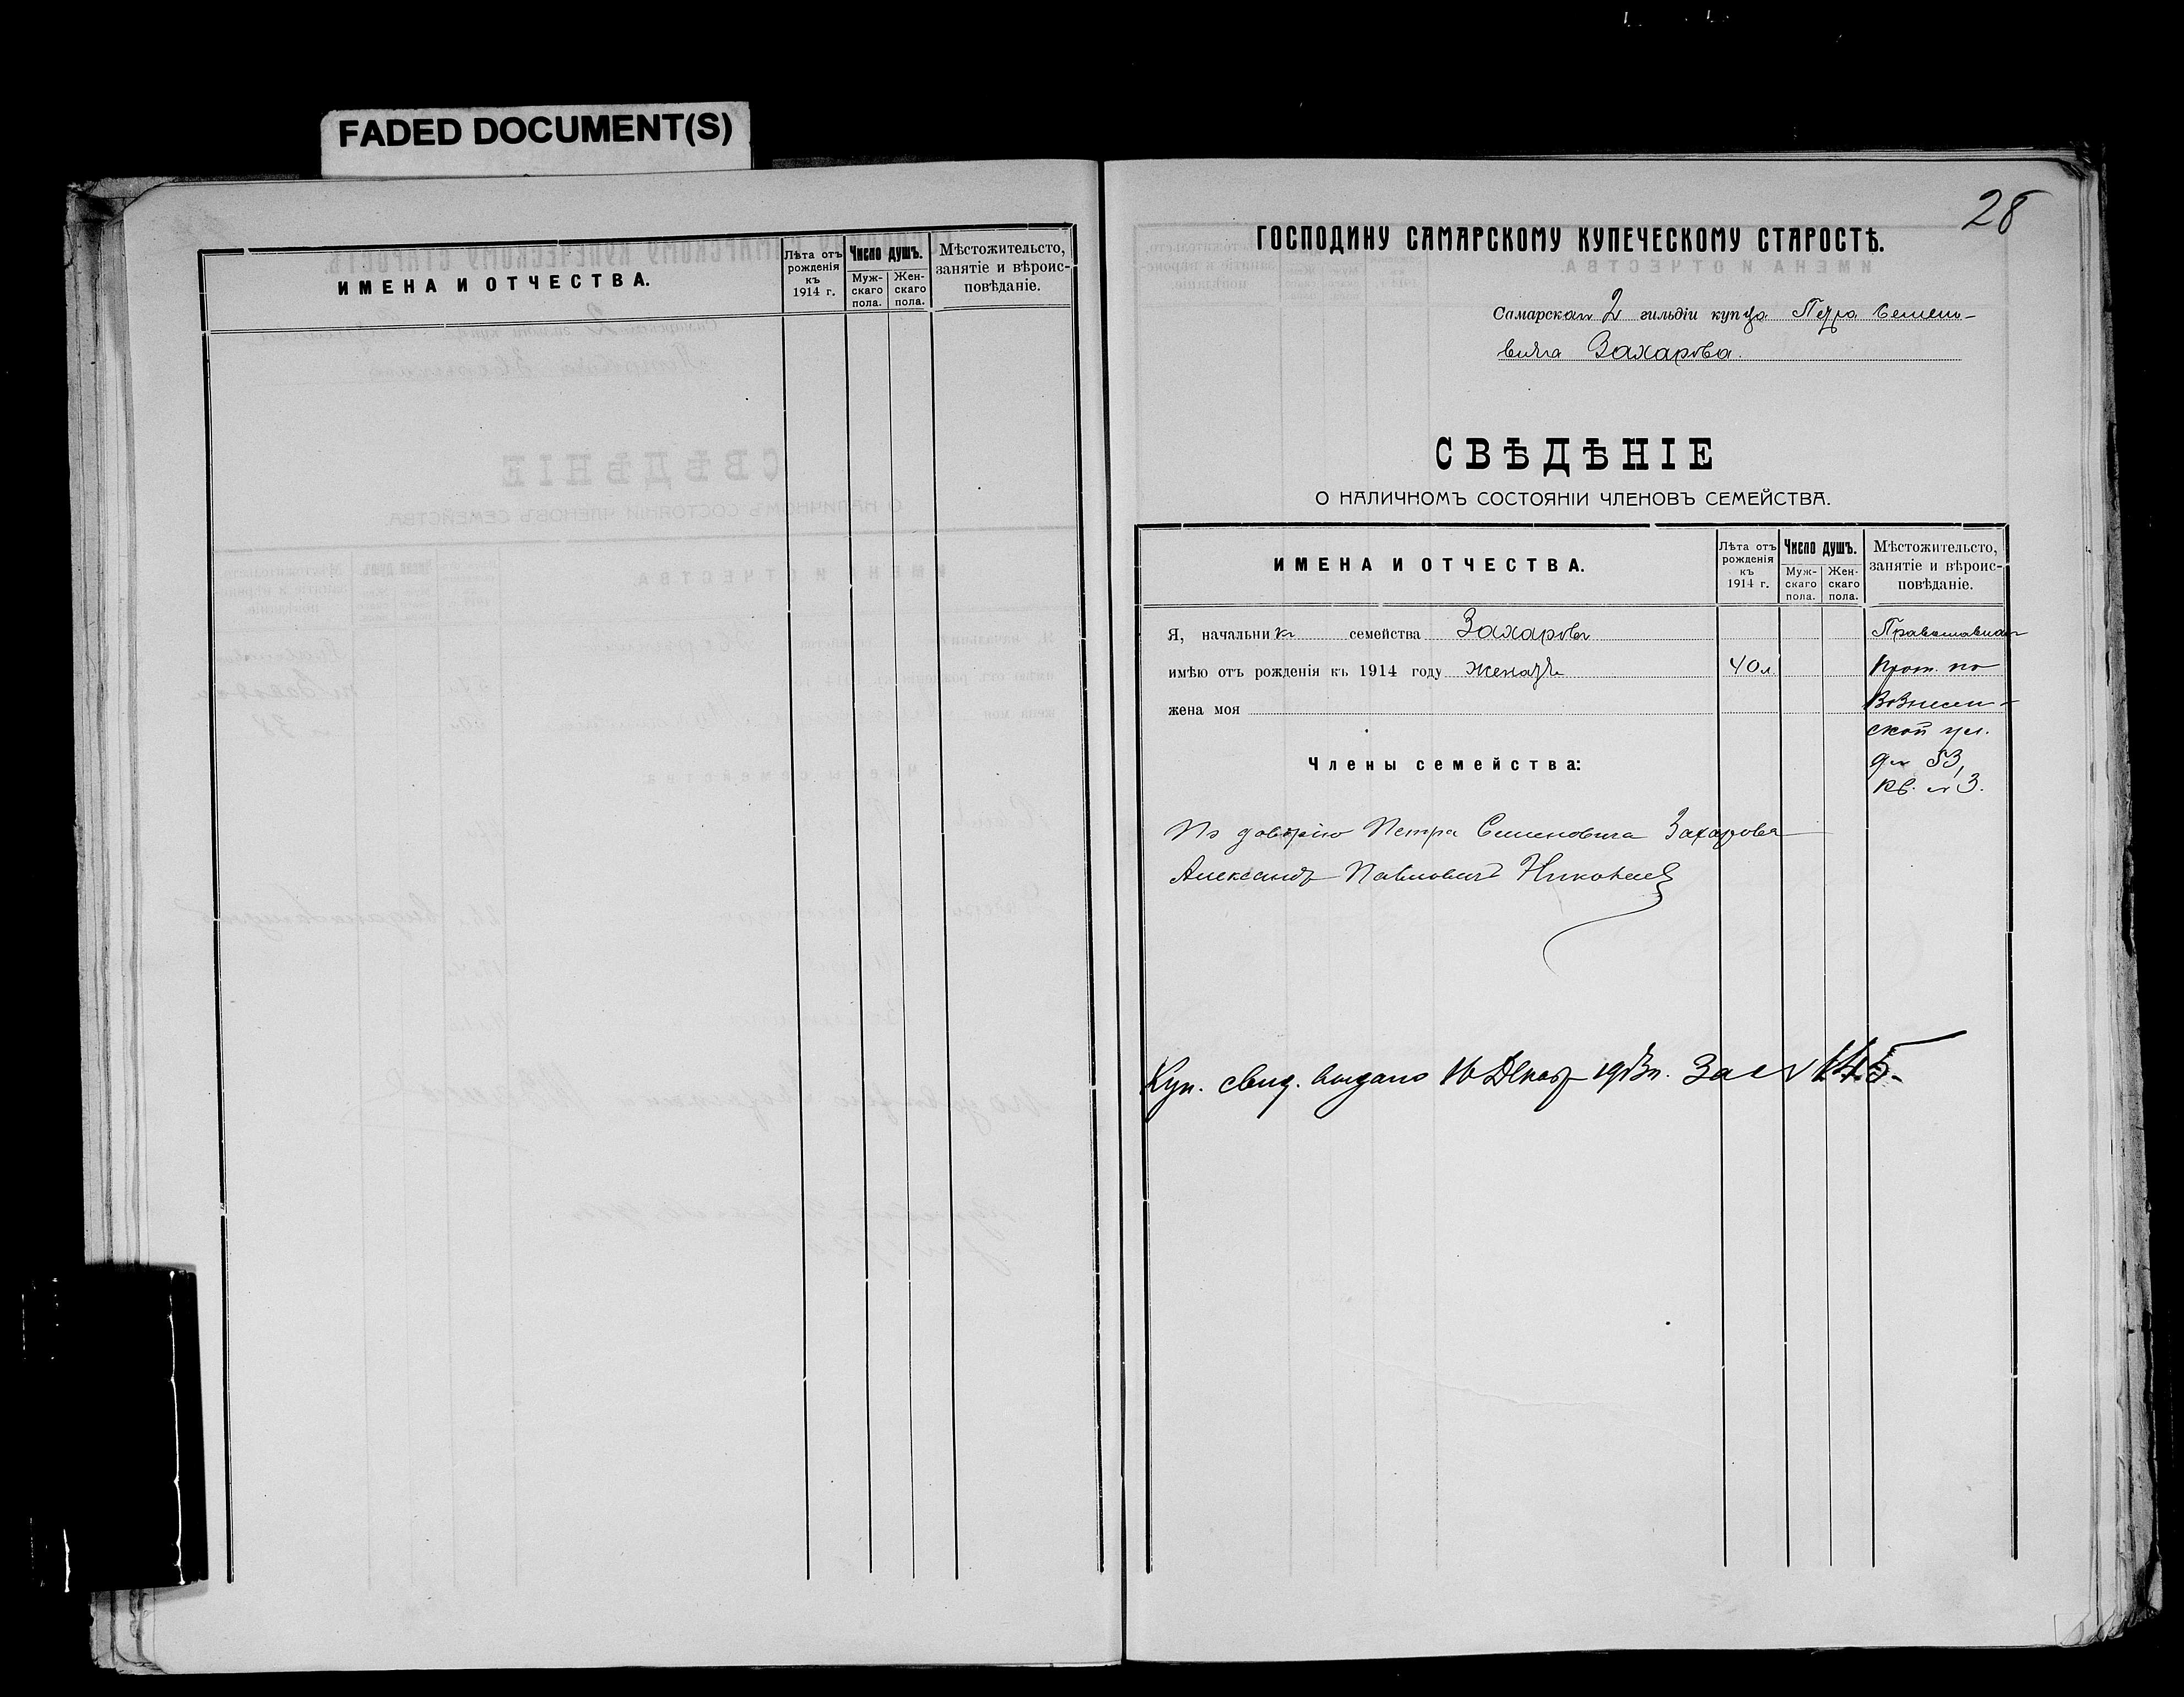 FADED DOCUMENT(S)
ИМЕНА И ОТЧЕСТВА.
Лѣта отъ рожденія къ 1914 г.
Число душъ.
Муж-скаго пола.
Жен-скаго пола.
Мѣстожительсто, занятіе и вѣроис-повѣданіе.
28
ГОСПОДИНУ САМАРСКОМУ КУПЕЧЕСКОМУ СТАРОСТѢ.
Самарскаго 2 гильдіи купца Петра Семено-
вича Захарова.
СВѢДѢНІЕ
О НАЛИЧНОМЪ СОСТОЯНІИ ЧЛЕНОВЪ СЕМЕЙСТВА.
ИМЕНА И ОТЧЕСТВА.
Лѣта отъ рожденія къ 1914 г.
Число душъ.
Муж-скаго пола.
Жен-скаго пола.
Мѣстожительсто, занятіе и вѣроис-повѣданіе.
Я, начальникъ семейства Захаровъ
Православнаго
имѣю отъ рожденія къ 1914 году женатъ 40 л.
Прож. по
жена моя
Вознесен-
ской ул.
Члены семейства:
д № 53,
кв. № 3.
По доверію Петра Семеновича Захарова
Александр Павловичъ Николаев
Куп. свид. выдано 16 Декаб 1913 г. за № 145.